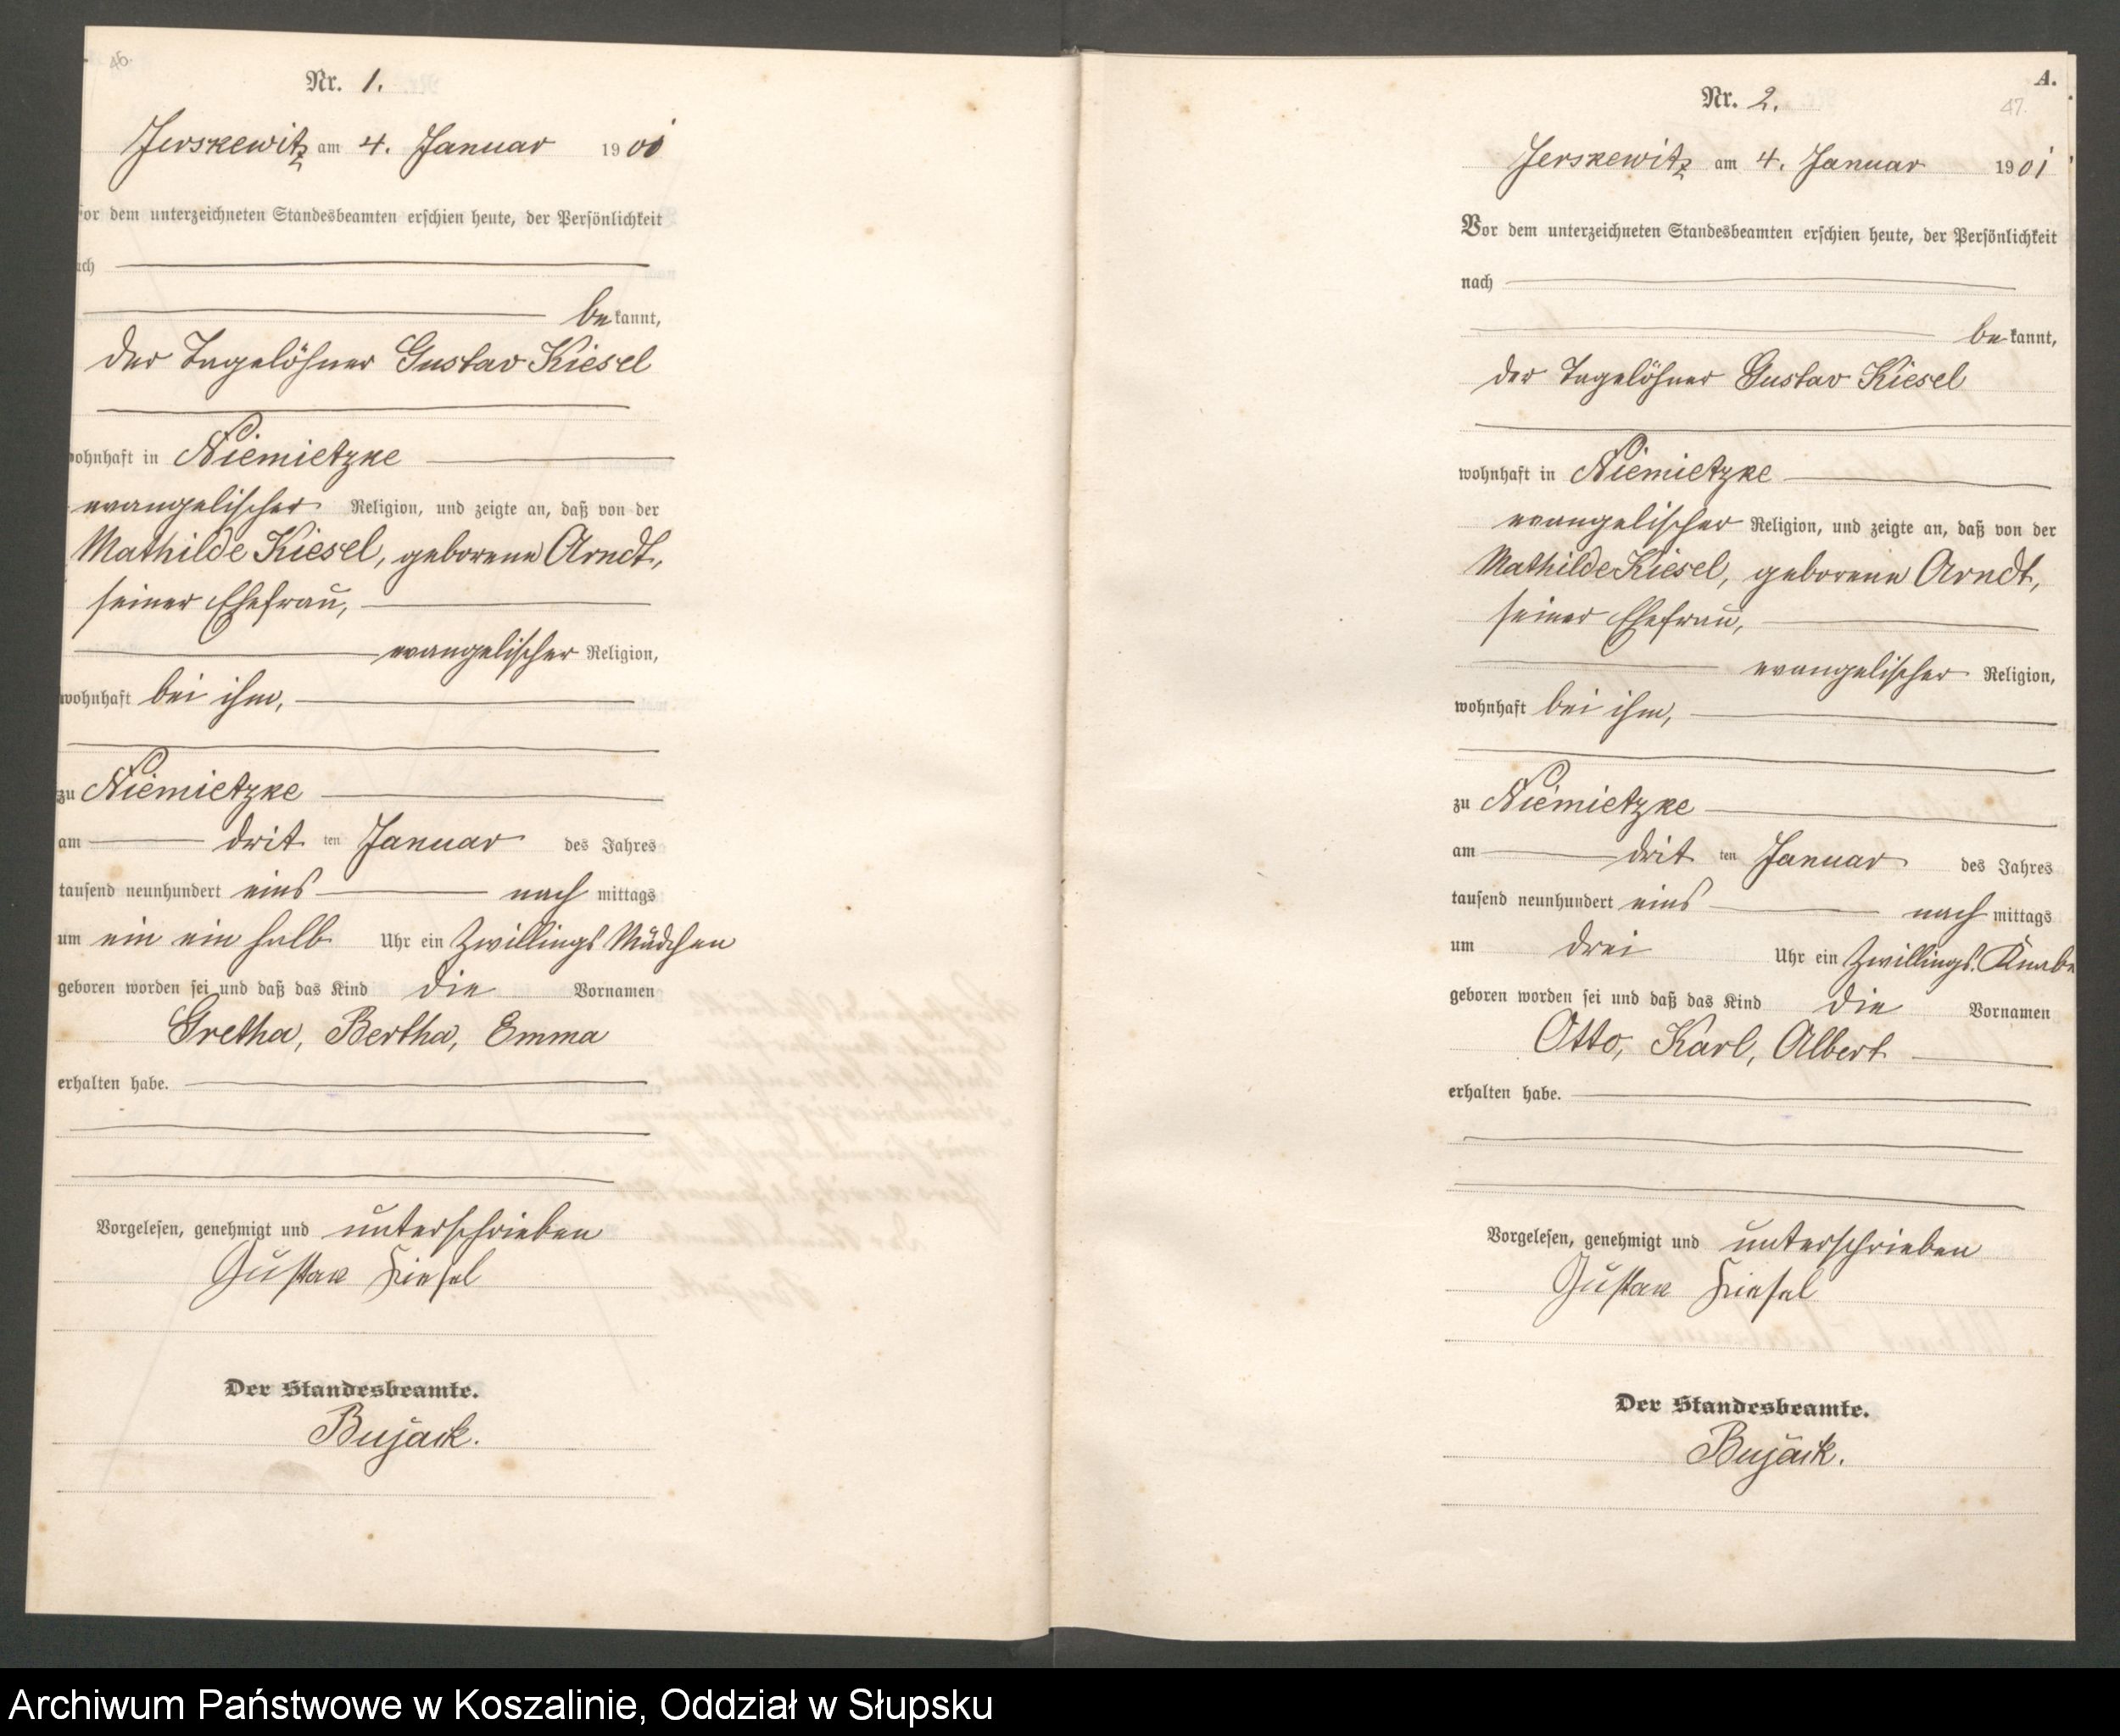 46.
Nr. 1.
Jerskewitz am 4. Januar 1901
or dem unterzeichneten Standesbeamten erschien heute, der Persönlichkeit
ach
bekannt,
der Tagelöhner Gustav Kiesel
wohnhaft in Niemietzke
evangelischer Religion, und zeigte an, daß von der
Mathilde Kiesel, geborene Arndt,
seiner Ehefrau,
evangelischer Religion,
wohnhaft bei ihm,
zu Niemietzke
am dritten Januar des Jahres
tausend neunhundert eins nachmittags
um ein ein halb Uhr ein Zwillings Mädchen
geboren worden sei und daß das Kind die Vornamen
Gretha, Bertha, Emma
erhalten habe.
Vorgelesen, genehmigt und unterschrieben
Gustav Kiesel
Der Standesbeamte.
Bujack.
A.
47.
Nr. 2.
Jerskewitz am 4. Januar 1901
Vor dem unterzeichneten Standesbeamten erschien heute, der Persönlichkeit
nach
bekannt,
der Tagelöhner Gustav Kiesel
wohnhaft in Niemietzke
evangelischer Religion, und zeigte an, daß von der
Mathilde Kiesel, geborene Arndt,
seiner Ehefrau,
evangelischer Religion,
wohnhaft bei ihm,
zu Niemietzke
am dritten Januar des Jahres
tausend neunhundert eins nachmittags
um drei Uhr ein Zwillings Knabe
geboren worden sei und daß das Kind die Vornamen
Otto, Karl, Albert
erhalten habe.
Vorgelesen, genehmigt und unterschrieben
Gustav Kiesel
Der Standesbeamte.
Bujack.
Archiwum Państwowe w Koszalinie, Oddział w Słupsku